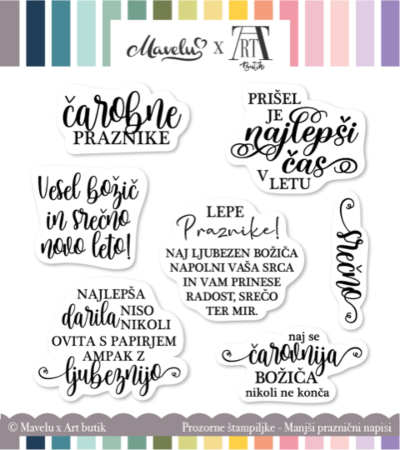 Mavelu x ART
Butik
čarobne
PRAZNIKE
PRIŠEL
JE
najlepši
čas
V LETU
Vesel božič
in srečno
novo leto!
LEPE
Praznike!
NAJ LJUBEZEN BOŽIČA
NAPOLNI VAŠA SRCA
IN VAM PRINESE
RADOST, SREČO
TER MIR.
srečno
NAJLEPŠA
darila NISO
NIKOLI
OVITA S PAPIRJEM
AMPAK Z
ljubeznijo
naj se
čarovnija
BOŽIČA
nikoli ne konča
© Mavelu x Art butik
Prozorne štampiljke - Manjši praznični napisi